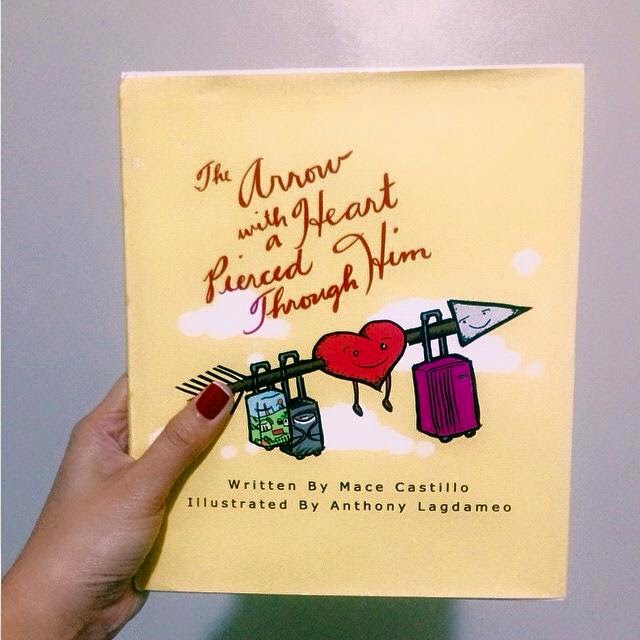 The Arrow
with a Heart
Pierced
Through Him
Written By Mace Castillo
Illustrated By Anthony Lagdameo